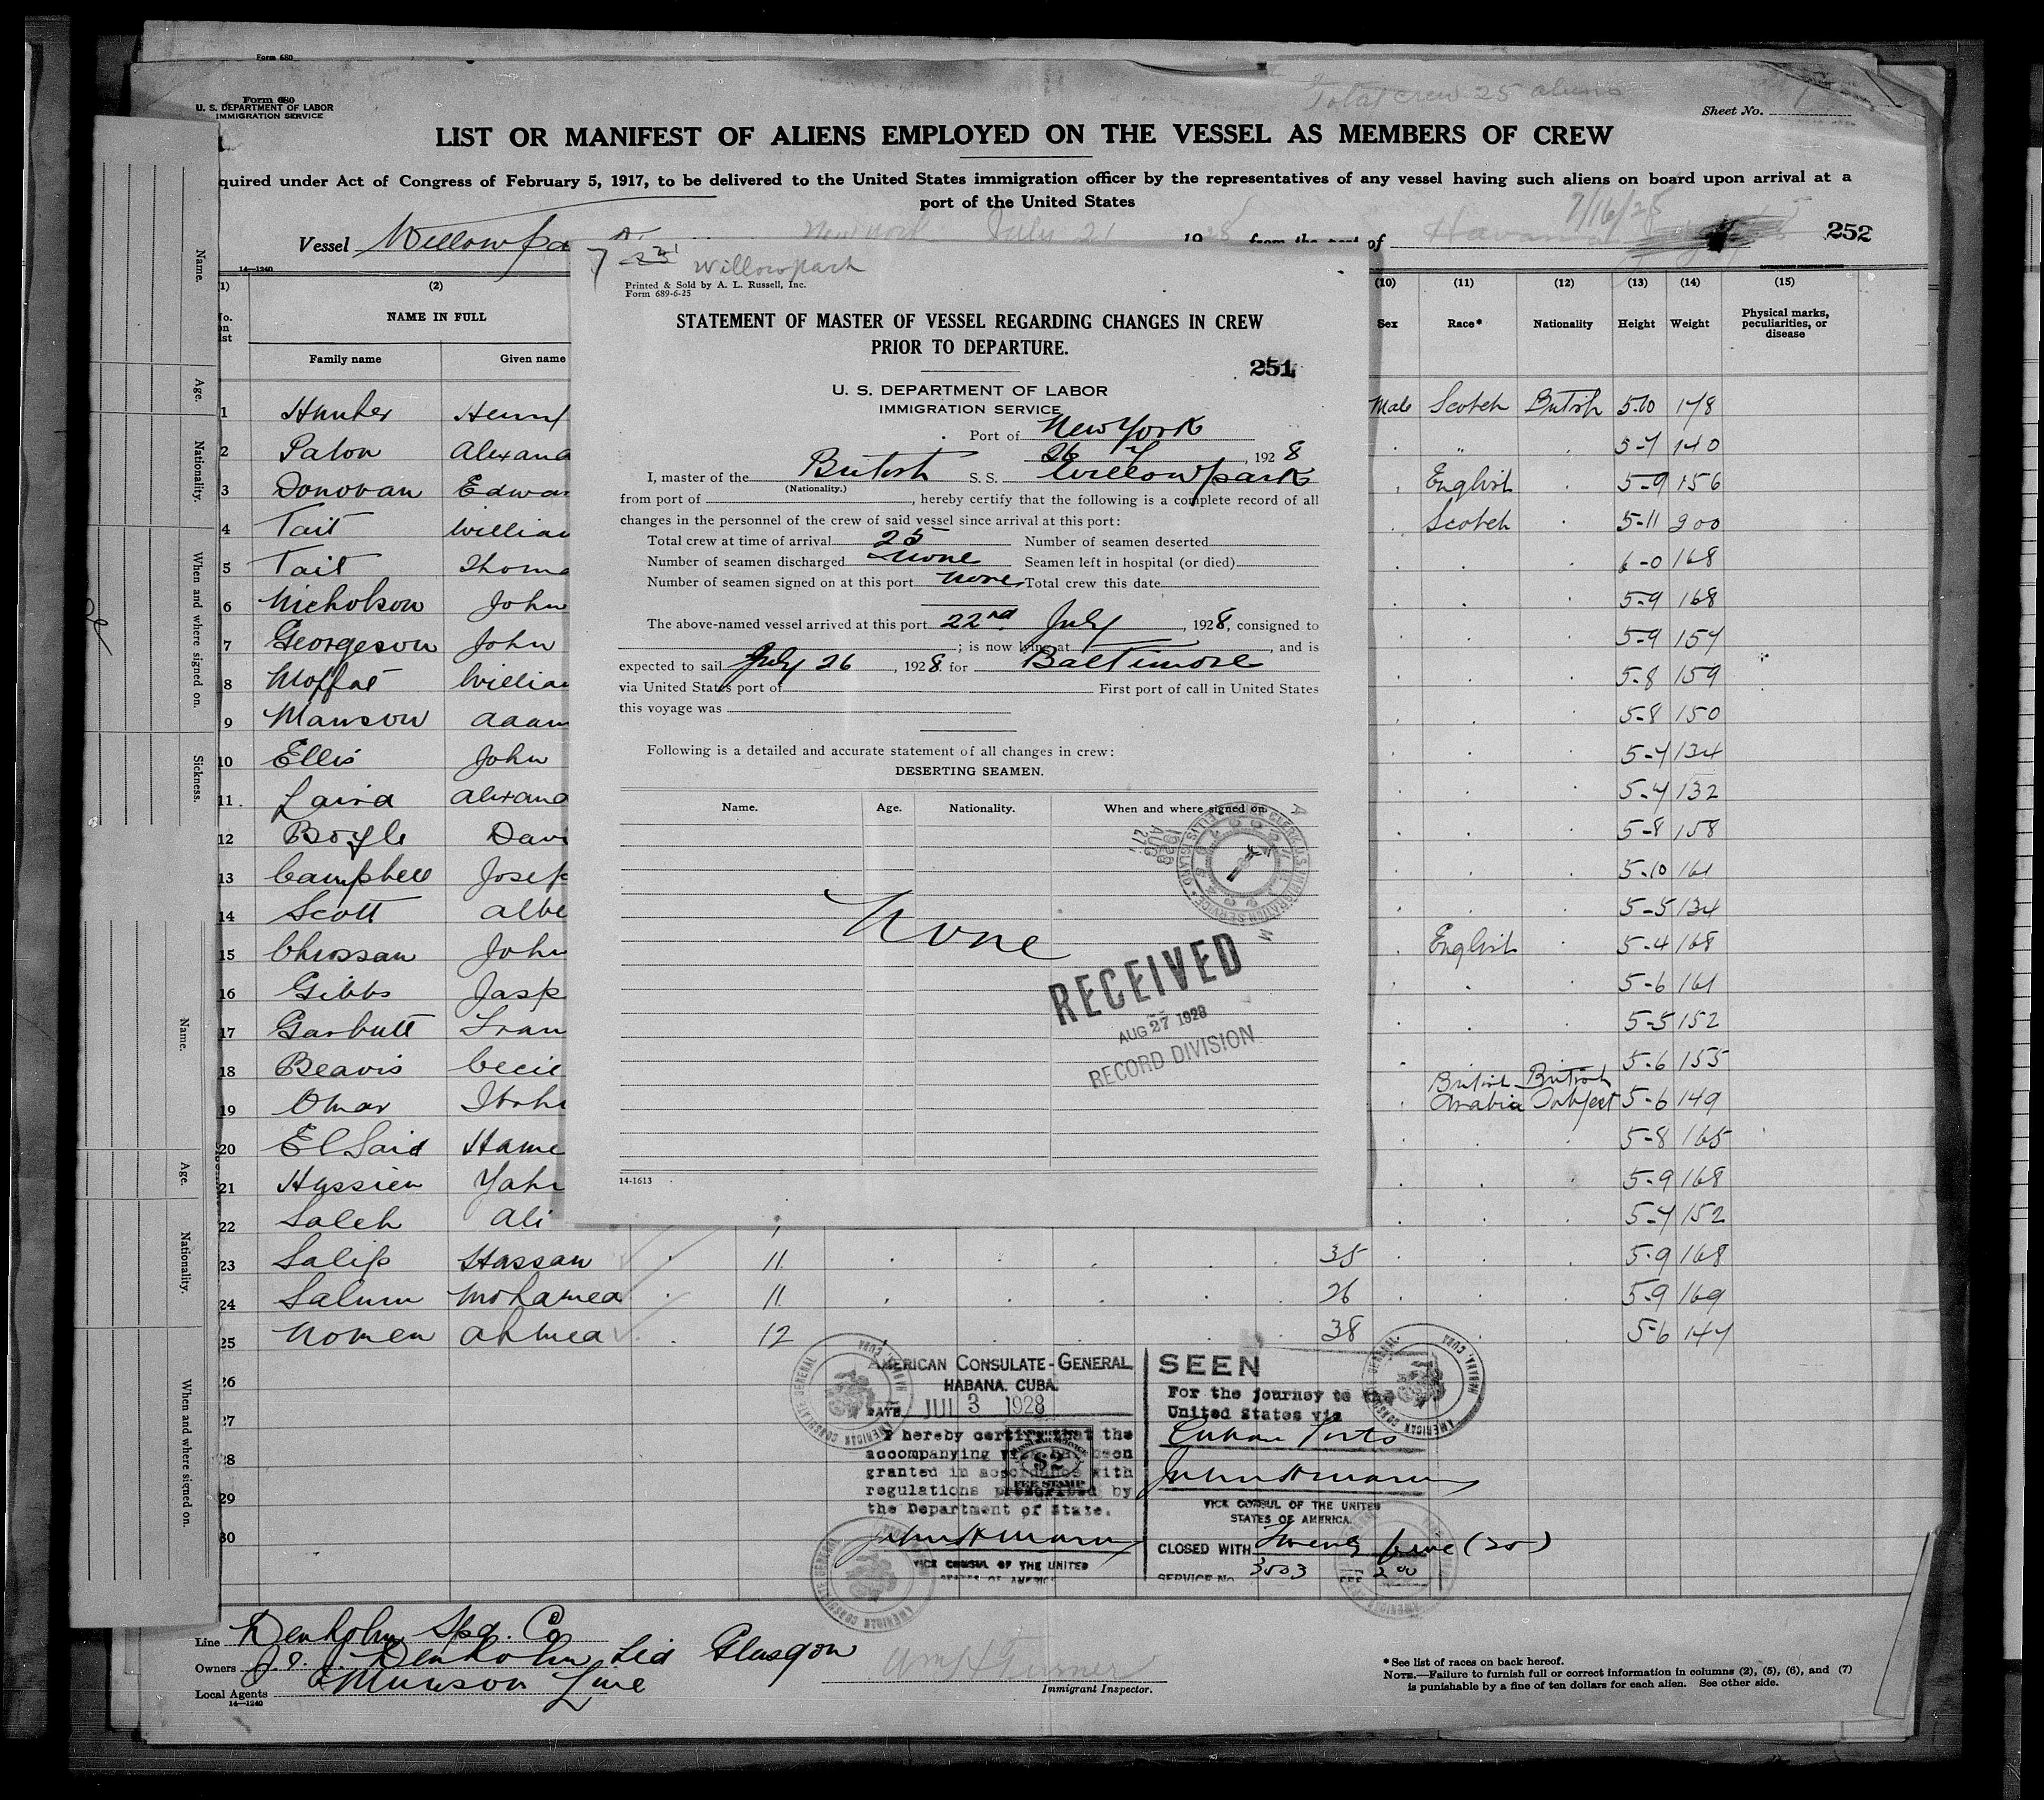 Form 680
Form 680
U. S. DEPARTMENT OF LABOR
IMMIGRATION SERVICE
Total crew 25 aliens
Sheet No.
LIST OR MANIFEST OF ALIENS EMPLOYED ON THE VESSEL AS MEMBERS OF CREW
quired under Act of Congress of February 5, 1917, to be delivered to the United States immigration officer by the representatives of any vessel having such aliens on board upon arrival at a
port of the United States
7/16/28
Vessel Willowpa New York July 21 1928 from the port of Havana 252
14—1240
(1) (2) (10) (11) (12) (13) (14) (15)
NAME IN FULL Sex Race* Nationality Height Weight Physical marks, peculiarities, or disease
No. on list Family name Given name
1 Hunter Henry Male Scotch British 5-10 178
2 Paton Alexand 5-7 140
3 Donovan Edwar English 5-9 156
4 Tait William Scotch 5-11 200
5 Tait Thoma 6-0 168
6 Nicholson John 5-9 168
7 Georgeson John 5-9 157
8 Moffat William 5-8 159
9 Manson Adam 5-8 150
10 Ellis John 5-7 134
11 Laird Alexand 5-7 132
12 Boyle Davi 5-8 158
13 Campbell Josep 5-10 161
14 Scott Albe 5-5 134
15 John English 5-4 168
16 Gibbs Jasp 5-6 161
17 Garbutt Fran 5-5 152
18 Beavis Cecil 5-6 155
19 Omar Ibrahi British Arabia British Subject 5-6 149
20 El Said Hame 5-8 165
21 Hussien Yahi 5-9 168
22 Saleh Ali 5-7 152
23 Hassan 11 35 5-9 168
24 Salum Mohamed 11 26 5-9 169
25 Nomen Ahmed 12 38 5-6 147
26
27
28
29
30
Willowpark
Printed & Sold by A. L. Russell, Inc.
Form 689-6-25
STATEMENT OF MASTER OF VESSEL REGARDING CHANGES IN CREW
PRIOR TO DEPARTURE.
251
U. S. DEPARTMENT OF LABOR
IMMIGRATION SERVICE
Port of New York
26 7, 1928
I, master of the British S. S. Willowpark
(Nationality.)
from port of , hereby certify that the following is a complete record of all
changes in the personnel of the crew of said vessel since arrival at this port:
Total crew at time of arrival 25 Number of seamen deserted
Number of seamen discharged None Seamen left in hospital (or died)
Number of seamen signed on at this port None Total crew this date
The above-named vessel arrived at this port 22nd July, 1928, consigned to
; is now lying at , and is
expected to sail July 26, 1928 for Baltimore
via United States port of First port of call in United States
this voyage was
Following is a detailed and accurate statement of all changes in crew:
DESERTING SEAMEN.
Name. Age. Nationality. When and where signed on.
None
1928
AUG
27
RECEIVED
AUG 27 1928
RECORD DIVISION
14-1613
Name.
Age.
Nationality.
When and where signed on.
Sickness.
Name.
Age.
Nationality.
When and where signed on.
AMERICAN CONSULATE-GENERAL
HABANA. CUBA.
DATE 3 1928
I hereby certify that the
accompanying visa has been
granted in accordance with
regulations prescribed by
the Department of State.
$2
FEE STAMP
VICE CONSUL OF THE UNITED
STATES OF AMERICA
SEEN
For the journey to the
United States via
Cuban Ports
VICE CONSUL OF THE UNITED
STATES OF AMERICA.
CLOSED WITH Twenty five (25)
SERVICE No. 3503 FEE 2.00
AMERICAN CONSULATE GENERAL HABANA, CUBA
Line Denholm Spg. Co
Owners J. & J. Denholm Ltd Glasgow
Local Agents Munson Line
14—1240
Immigrant Inspector.
*See list of races on back hereof.
NOTE.—Failure to furnish full or correct information in columns (2), (5), (6), and (7)
is punishable by a fine of ten dollars for each alien. See other side.